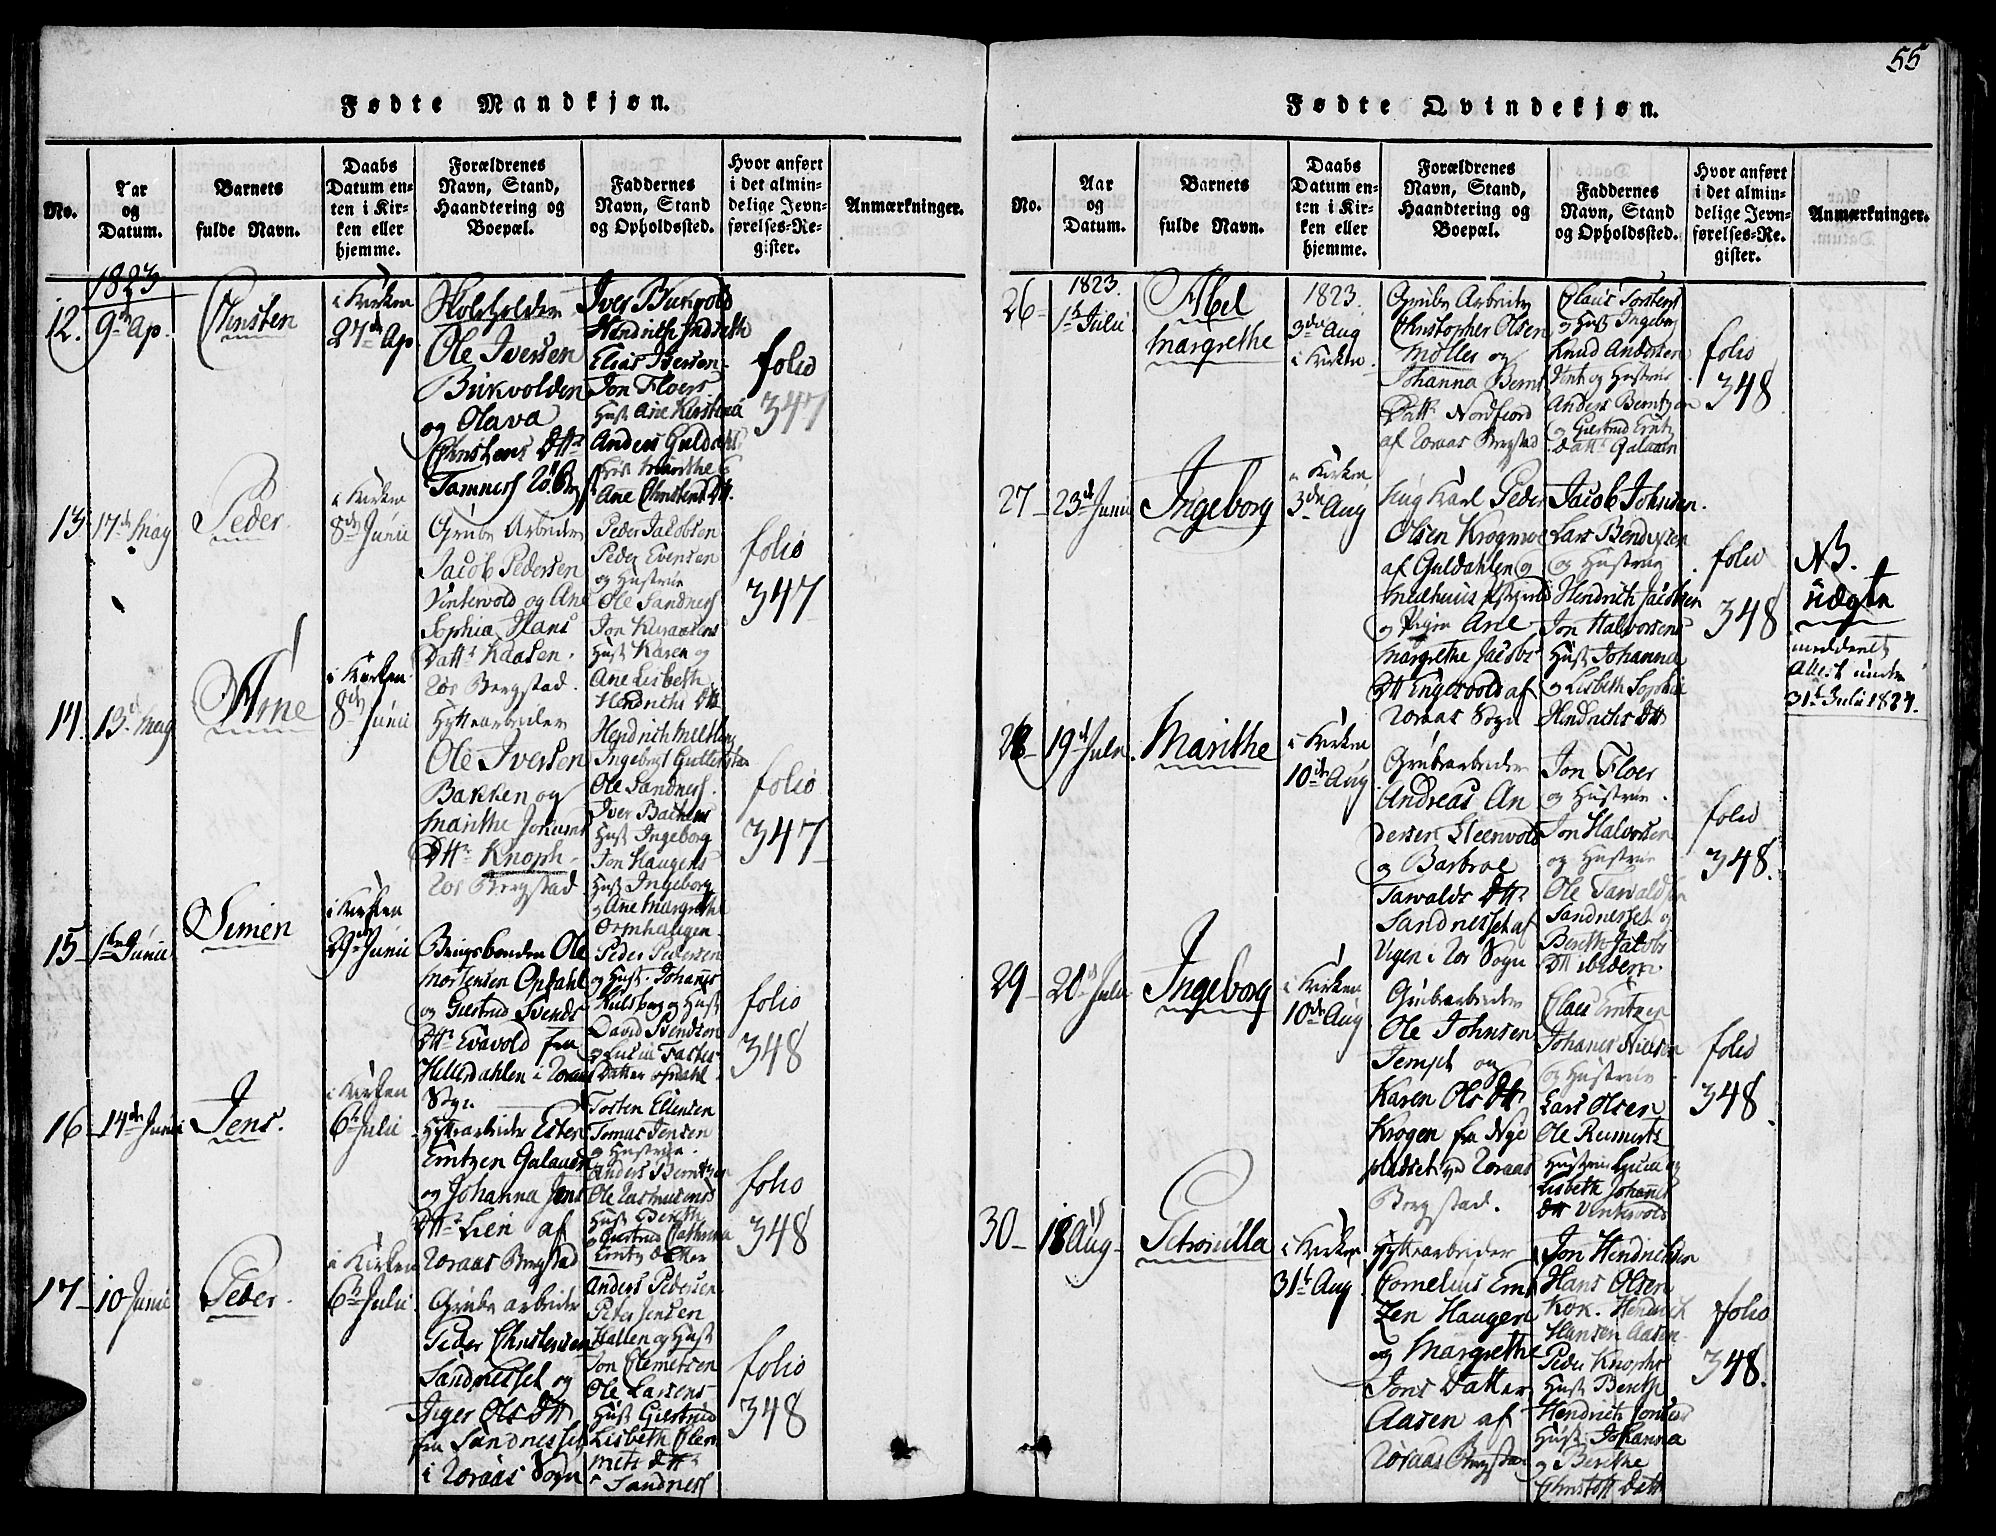 55
Fødte Mandkjøn.
No.
Aar
og
Datum.
Barnets
fulde Navn.
Daabs
Datum en-
ten i Kir-
ken eller
hjemme.
Forældrenes
Navn, Stand,
Haandtering og
Boepæl.
Faddernes
Navn, Stand
og Opholdssted.
Hvor anført
i det almin-
delige Jevn-
førelses-Re-
gister.
Anmærkninger.
1823
12.
9de Ap.
Christen
i Kirken
27de Ap.
Skoleholder
Ole Iversen
Birkvolden
og Olava
Christens Dttr
Tamness
Iver Birkvold
Elias Iversen
Jon Floers
Hust. Ane Kirstina
Anders Guldahls
Hust. Marithe
Ane Christens Dtt.
folio
347
13
17de May
Peder.
i Kirken
8de Junii
Grube Arbeider
Jacob Pedersen
Vintervold og Ane
Sophia Hans
Datt. Kaasen.
Ros Bergstad.
Peder Jacobsen
Peder Evensen
og Hustrue
Ole Sandness
Hust Karen og
Ane Lisbeth
Hendrichs Dtt
folio
347
14.
13de May
Arne
i Kirken
8de Junii
Hyttearbeider
Ole Iversen
Bakken og
Marithe
Dttr. Knoph.
Ros Bergstad
Ole Sandness.
Iver Bachens
Hust Ingeborg
Jon Haugens
Hust Ingeborg
og Ane Margrethe
Ormhaugen.
folio
347
15
1te Junii
Simen
i Kirken
29de Junii
Bergsbonden Ole
Mortensen Opdahl
og Giertrud Svends
Dttr. Evavold fra
Hitterdahlen i Roraas
Sogn
Peder Pedersen
og Hust. Johannes
og Hust
David Svendsen
og Lucia
Datter Opdahl.
folio
348
16
14de Junii
Jens.
i Kirken
6te Julii
Hyttearbeider Ester
Erntzen Galaaen
og Johanna Jens
Dttr. Lien af
Roraas Bergstad
Tosten Ellensen
Tomas Jensen
og Hustrue.
Anders Berntzen
Ole Rasmusens
Hust Bereth
og Giertrud Cathrina
Erntz Datter
folio
348
17
10 Junii
Peder.
i Kirken
6te Julii
Grube arbeider
Peder Christensen
Sandnesset og
Inger Ols Dtt
fra Sandnesset
i Roraas Sogn
Anders Pedersen
Peter Jensen
Hallen og Hust
Jon Clemetsen
Ole Larsens
Hust Giertrud
Lisbeth Clem
mets Dtt.
Sandness
folio
348
Fødte Qvindekjøn.
No.
Aar
og
Datum.
Barnets
fulde Navn.
Daabs
Datum en-
ten i Kir-
ken eller
hjemme.
Forældrenes
Navn, Stand,
Haandtering og
Boepæl.
Faddernes
Navn, Stand
og Opholdssted.
Hvor anført
i det almin-
delige Jevn-
førelses-Re-
gister.
Anmærkninger.
26
1823.
1te Julii
Abel
Margrethe
1823.
3die Aug
i Kirken.
Grube Arbeider
Christopher Olsen
Møller og
Johanna Bernt
Datt. Nordfiord
af Roraas Bergstad
Claus Torstens
og Hust Ingeborg
Knud Andersen
og Hustrue
Anders Berntzen
og Giertrud Erntz
Datt. Galaaen
folio
348
27
23de Junii
Ingeborg
i Kirken
3die Aug
Ung Karl Peder
Olsen Krogmoe
af Guldahlen og
Melhuus
og Pigen Ane
Margrethe Jacobs
Dtt Engesvold af
Roraas Sogn
Jacob Johnsen.
Lars Bendixsen
og Hustrue
Hendrich Jacobsen
Jon Halvorsens
Hust Johanna
og Lisbeth Sophia
Hendrichs Dtt
folio
348
NB.
Uægte
meddeelt
Attest under
31te Julii 1827.
28
19de Julii.
Marithe
i Kirken
10de Aug
Grubearbeider
Andreas An
dersen Steenvold
og Barbroe
Tarvalds Dttr
Sandnesset af
Vigen i Ros Sogn
Jon Floer
og Hustrue.
Jon Halvorsen
og Hustrue
Ole Tarvaldsen
Sandnesset og
Bereth Jacobs
Dtt ibidem.
folio
348.
29
20de Julii
Ingeborg
i Kirken
10de Aug
Grubearbeider
Ole Johnsen
Tempel og
Karen Ols Dtt
Krogen fra Nye
pladset ved Roraas
Bergstad.
Claus Erntzen
Johanes Nielsen
og Hustrue
Lars Olsen
Ole
Hustrue Lucia og
Lisbeth Johannes
Dtt Vintervold
folio
348.
30
18 Aug
Petronilla
i Kirken
31te Aug
Hyttearbeider
Cornelius Ernt
zen Haugen
og Margrethe
Jons Datter
Aasen af
Roraas Bergstad
Jon Hendrichsen
Hans Olsen
Kok. Hendrich
Hansen Aasen.
Peder Knophs
Hust Bereth
Hendrich Jonsens
Hust Johanna
og Berithe
Christoff Datt
folio
348.